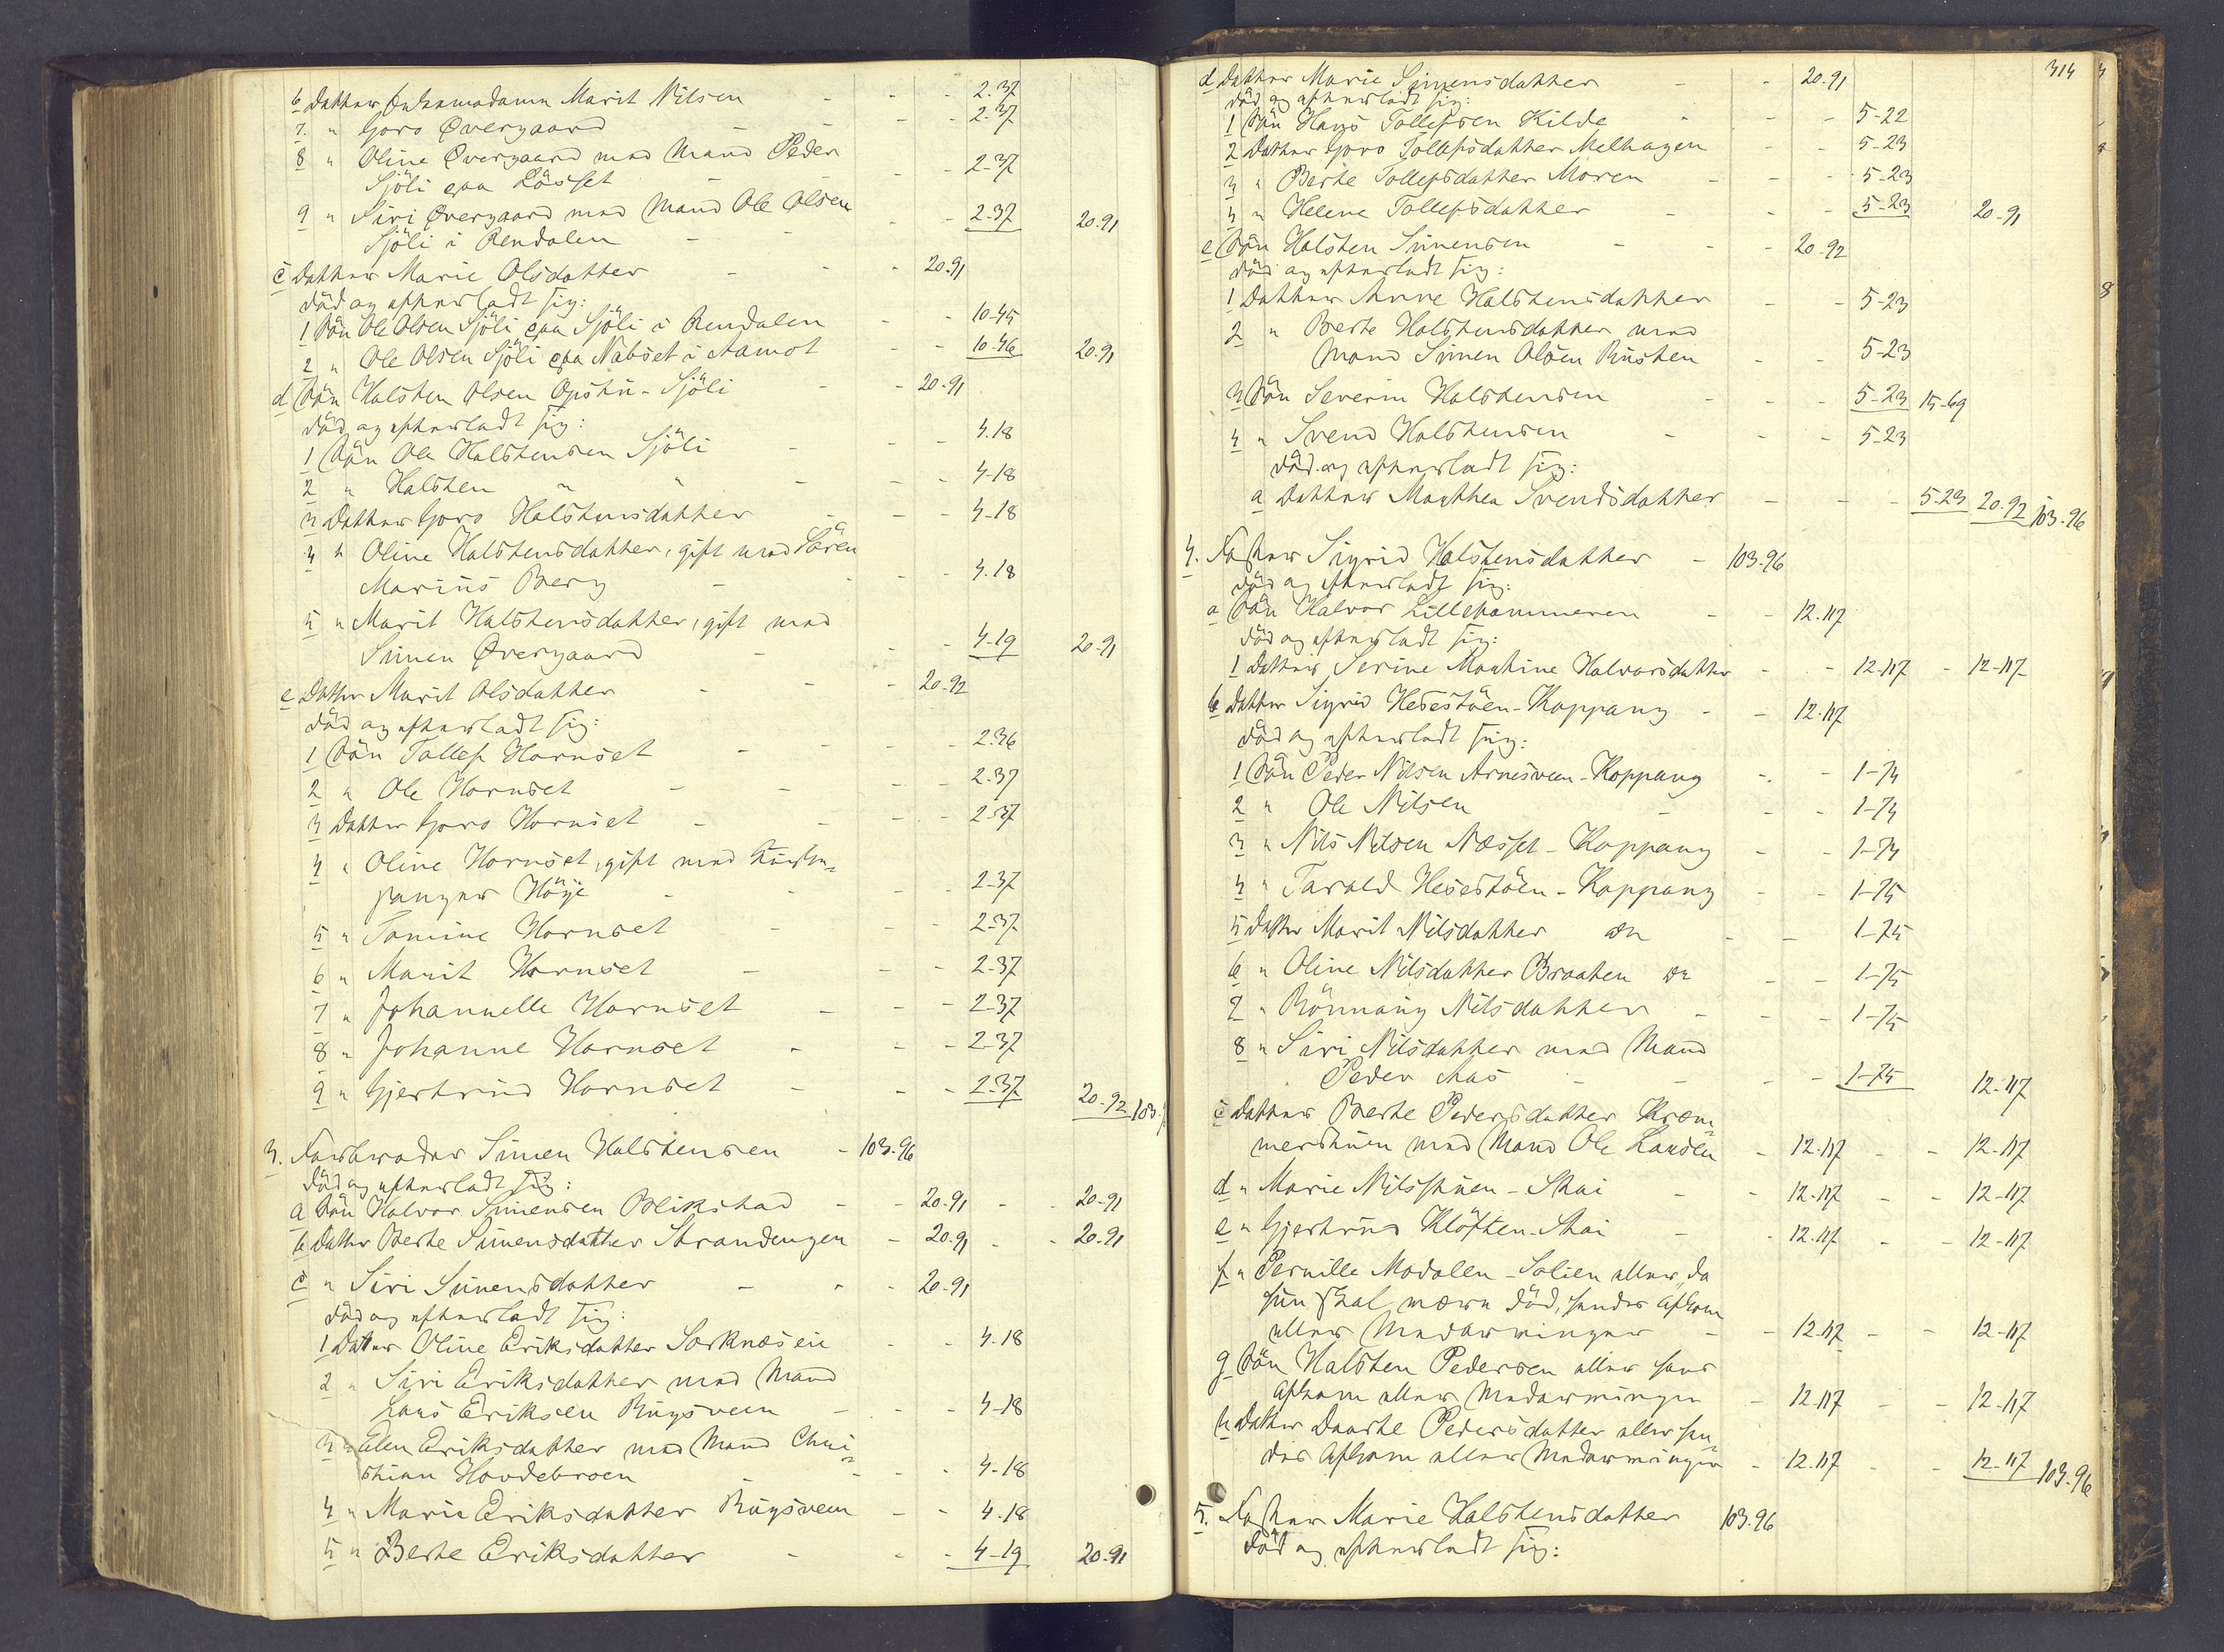 6 Datter Enkemadam Marit Nilsen - - - 2.37
7. " Goro Øvergaard - - - - 2.37
8 " Oline Øvergaard med Mand Peder
Sjöli paa Lösset - - - 2-37
9 " Siri Øvergaard med Mand Ole Olsen
Sjöli i Rendalen - - - - 2-37 20.91
c Datter Marie Olsdatter - - - 20.91
död og efterladt sig:
1 Sön Ole Olsen Sjöli paa Sjöli i Rendalen - - 10-45
2 " Ole Olsen Sjöli paa Nabset i Aamot - - 10-46 20.91
d Sön Halsten Olsen Opstu-Sjöli - - 20.91
död og efterladt sig:
1 Sön Ole Halstensen Sjöli - - - 4.18
2 " Halsten " " - - - 4-18
3 Datter Goro Halstensdatter - - - 4-18
4 " Oline Halstensdatter, gift med Sören
Marius Berg - - - - 4.18
5 " Marit Halstensdatter, gift med
Simen Øvergaard - - - 4-19 20-91
e Datter Marit Olsdatter - - - 20-92
död og efterladt sig:
1 Sön Tollef Hornset - - - - 2.36
2 " Ole Hornset - - - - 2-37
3 Datter Goro Hornset - - - - 2-37
4 " Oline Hornset, gift med
Höye - - - - 2-37
5 " Tomine Hornset - - - 2-37
6 " Marit Hornset - - - 2-37
7 " Johannelle Hornset - - - 2-37
8 " Johanne Hornset - - - 2-37
9 " Gjertrud Hornset - - - 2-37 20-92 103.
3. Farbroder Simen Halstensen - 103-96
död og efterladt sig:
a Sön Halvor Simensen Blikstad - - 20-91 - - 20-91
b Datter Berte Simensdatter Strandengen - 20-91 - - 20-91
c " Siri Simensdatter - - - 20-91
död og efterladt sig:
1 Datter Oline Eriksdatter Sorknæseie - - 4-18
2 " Siri Eriksdatter med Mand
Lars Eriksen Rugsveen - - - 4-18
3 " Elen Eriksdatter med Mand Chri-
stian Hovdebroen - - - 4-18
4 " Marie Eriksdatter Rugsveen - - 4.18
5 " Berte Eriksdatter - - - 4-19 20-91
314
d Datter Marie Simensdatter - - 20-91
död og efterladt sig:
1 Sön Hans Tollefsen Kilde - - - 5-22
2 Datter Goro Tollefsdatter Melhagen - - 5-23
3 " Berte Tollefsdatter Moren - - - 5-23
4 " Helene Tollefsdatter - - - 5-23 20-91
e Sön Halsten Simensen - - - 20-92
död og efterladt sig:
1 Datter Anne Halstensdatter - - 5-23
2 " Berte Halstensdatter med
Mand Simen Olsen Rusten - - 5-23
3 Sön Severin Halstensen - - - 5-23 15-69
4 " Svend Halstensen - - - 5-23
död og efterladt sig:
a Datter Marthea Svendsdatter - - - 5-23 20-92 103-96
4. Faster Sigrid Halstensdatter - 103-96
död og efterladt sig:
a Sön Halvor Lillehammeren - - 12.117
död og efterladt sig:
1 Datter Serine Marthine Halvorsdatter - - 12-117 - 12-117
b Datter Sigrid Hesestöen-Koppang - - 12.117
död og efterladt sig:
1 Sön Peder Nilsen Arnesveen-Koppang - - 1-74
2 " Ole Nilsen - - - 1-74
3 " Nils Nilsen Næsset-Koppang - - 1-74
4 " Tarald Hesestöen-Koppang - - 1-75
5 Datter Marit Nilsdatter - - 1-75
6 " Oline Nilsdatter Braaten - - 1-75
7 " Rönnaug Nilsdatter - - - 1-75
8 " Siri Nilsdatter med Mand
Peder Aas - - - - 1-75 12-117
c Datter Berte Pedersdatter Kræm-
merstuen med Mand Ole Larsen - 12.117 - - 12-117
d " Marie Nilsstuen-Skai - - 12-117 - - 12-117
e " Gjertrud Klöften-Skai - - 12-117 - - 12-117
f " Pernille Modalen-Solien eller, da
hun skal være död, hendes Afkom
eller Medarvinger - - 12-117 - - 12-117
g Sön Halsten Pedersen eller hans
Afkom eller Medarvinger - 12-117 - - 12-117
h Datter Daarte Pedersdatter eller hen-
des Afkom eller Medarvinger - 12-117 - - 12-117 103-96
5. Faster Marie Halstensdatter 103-96
död og efterladt sig: